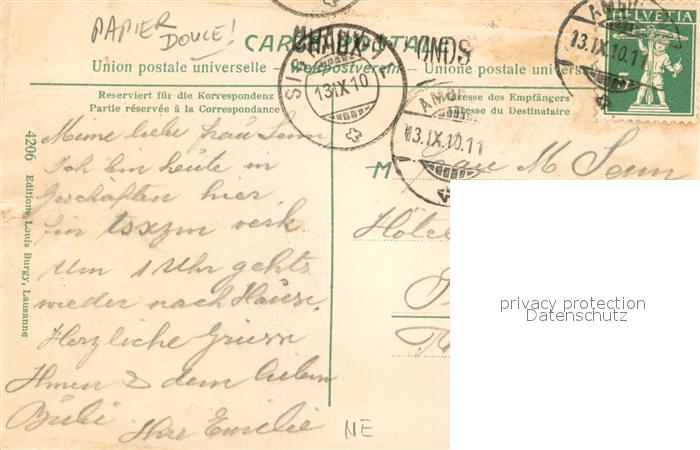 PAPIER
DOUCE!
CARTE POSTALE
CHAUX - FONDS
Union postale universelle — Weltpostverein — Unione postale universale
Reserviert für die Korrespondenz
Partie réservée à la Correspondance
Adresse des Empfängers
Adresse du Destinataire
HELVETIA
5
13.IX.10.11
13.IX.10
AMBU
13.IX.10.11
4206 Editions Louis Burgy, Lausanne
Meine liebe Frau Senn
Ich bin heute in
Geschäften hier
Um 1 Uhr gehts
wieder nach Hause.
Herzliche Grüsse
Ihnen & dem lieben
Bubi Ihre Emilie
M Frau M Senn
Hôtel
NE
privacy protection
Datenschutz